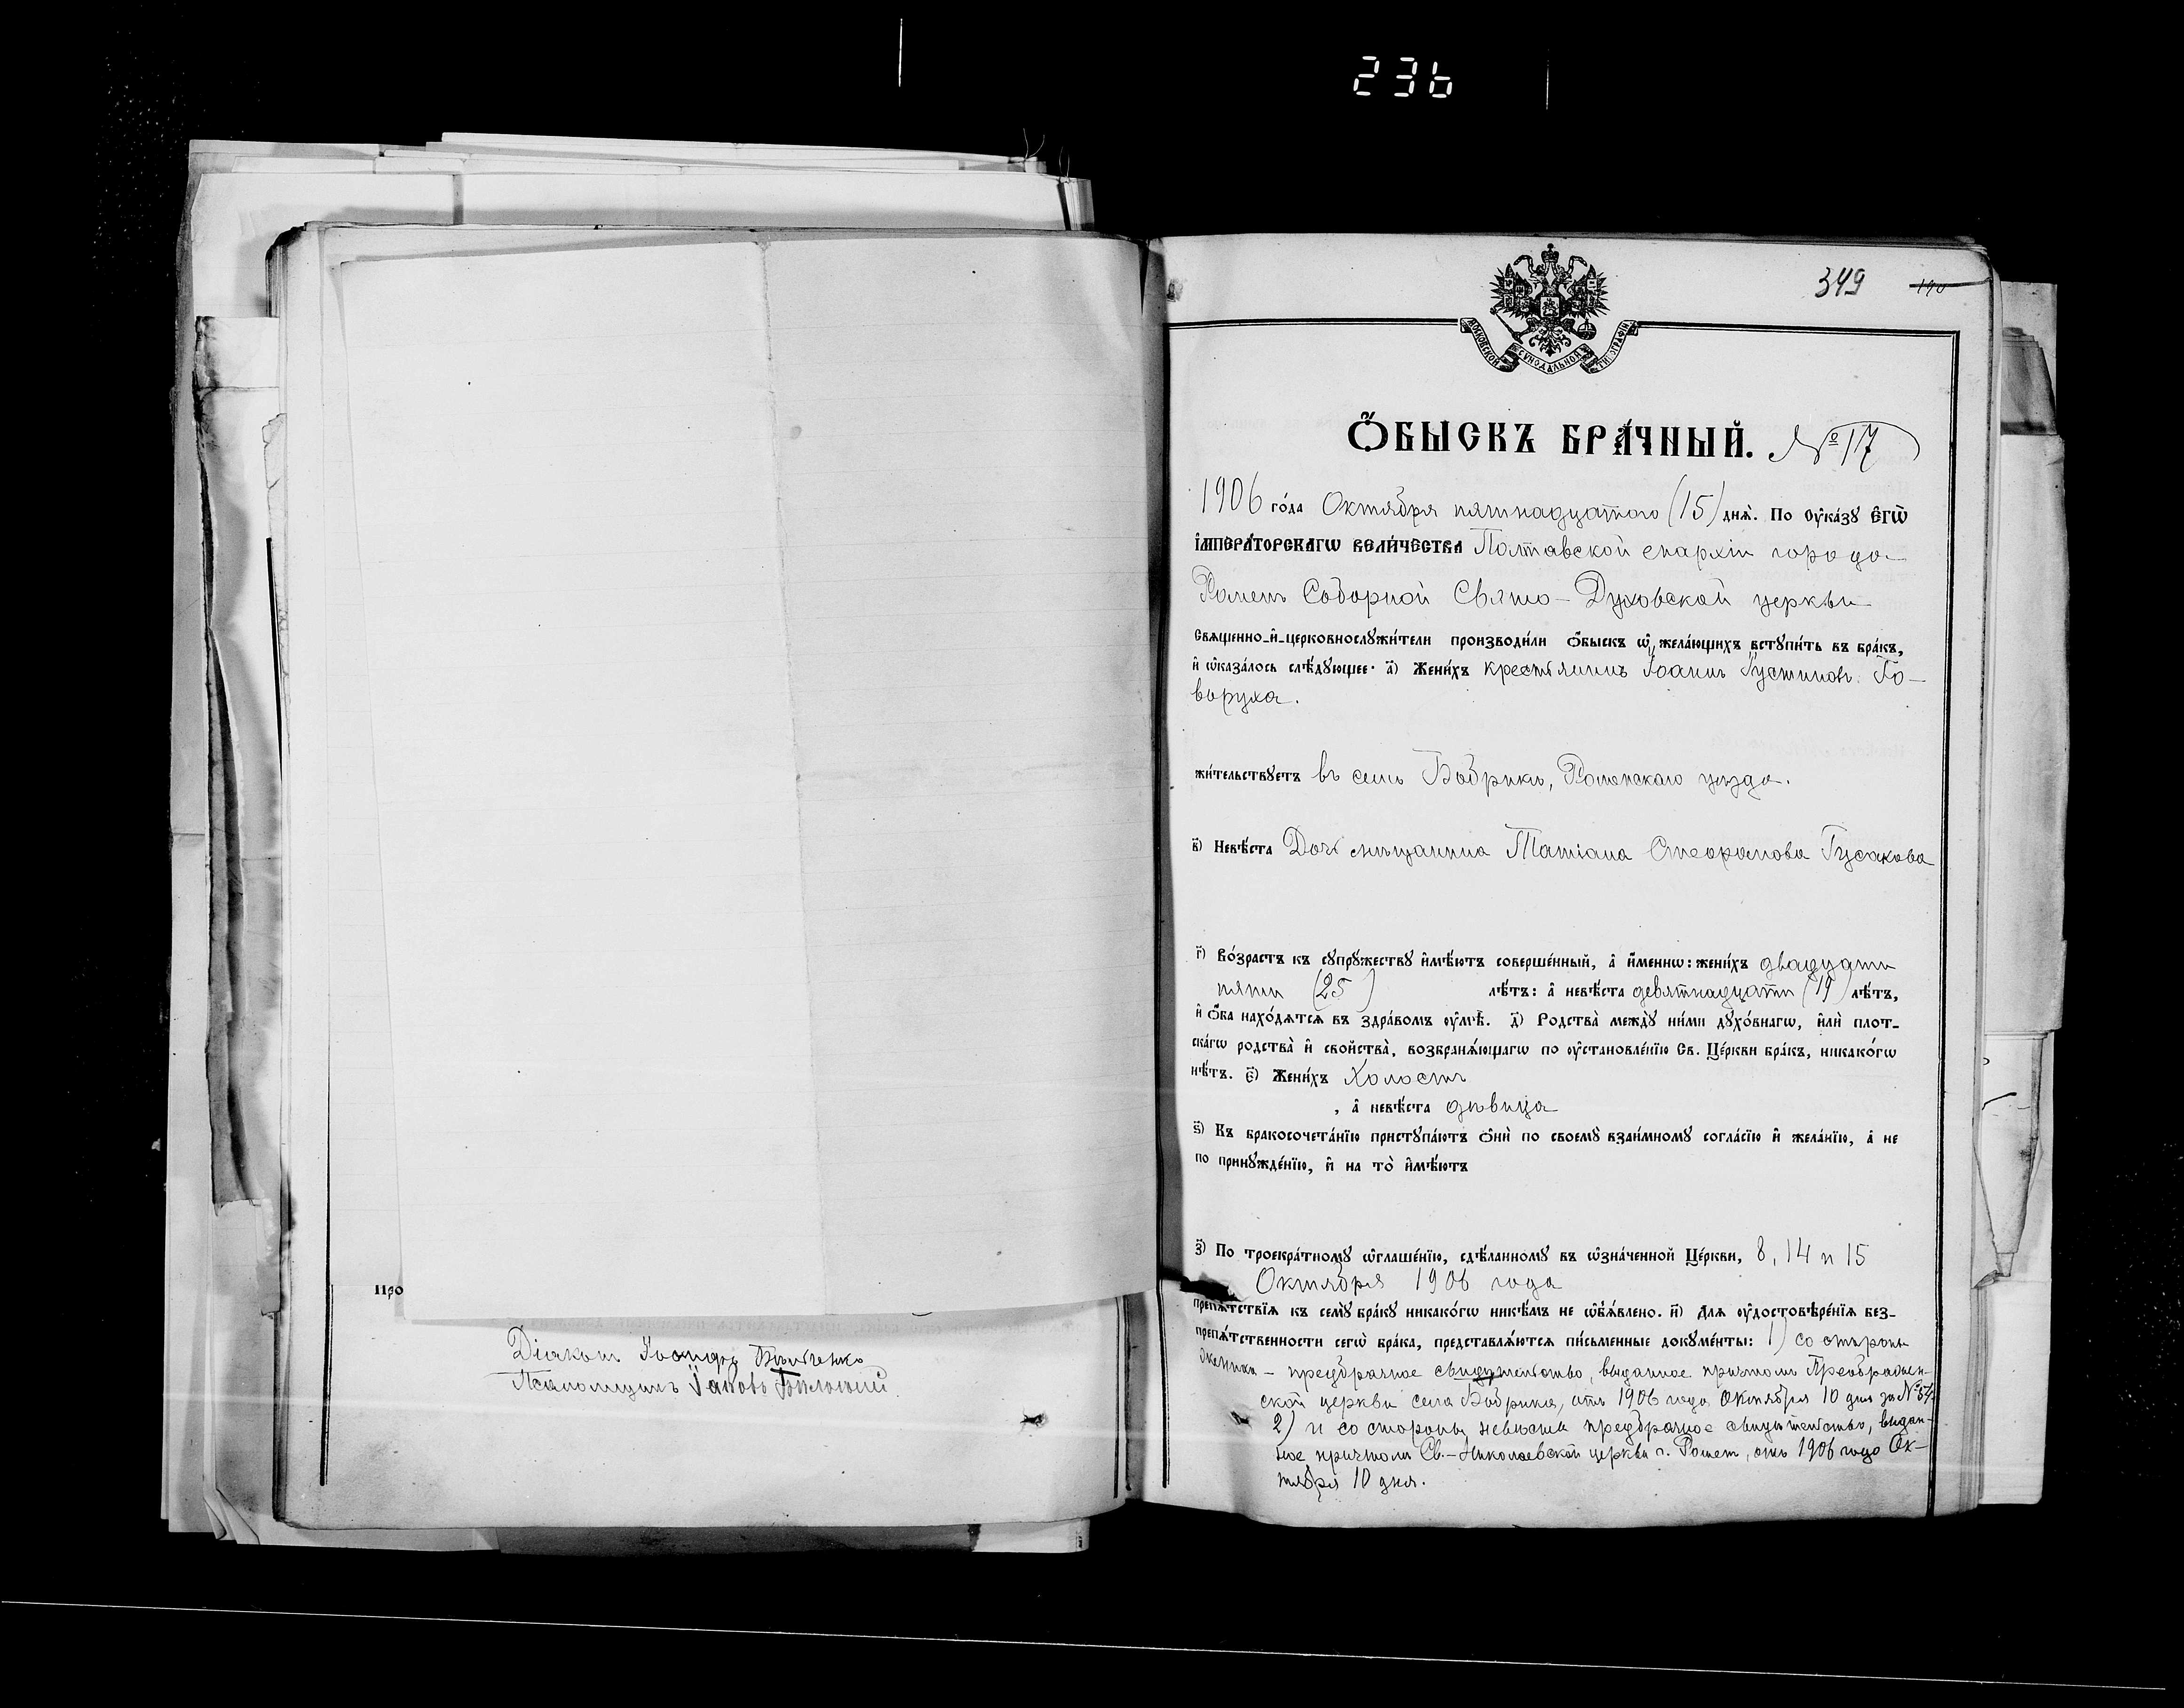 236
349
190
МОСКОВСКОЙ СѴНОДАЛЬНОЙ ТИПОГРАФІИ
Ѻ҆БЫСКЪ БРА́ЧНЫЙ. № 17
1906 го́да Октября пятнадцатого (15) днѧ̀. По ᲂу҆ка́зꙋ є҆гѡ̀
і҆мпера́торскагѡ вели́чества Полтавской епархіи города
Роменъ Соборной Свято-Духовской церкви
Священно-и҆-церковнослꙋжи́тели производи́ли ѻ҆́быскъ ѡ҆ жела́ющихъ встꙋпи́ть въ бра́къ,
и҆ ѡ҆каза́лось слѣ́дꙋющее: а҃) Жени́хъ крестьянинъ Іоаннъ Іустиновъ Го-
воруха.
жи́тельствꙋетъ въ селѣ Бобрикѣ, Роменскаго уѣзда.
в҃) Невѣ́ста Дочь мѣщанина Татіана Стефанова Гусакова
г҃) Во́зрастъ къ сꙋпрꙋ́жествꙋ и҆мѣ́ютъ соверше́нный, а҆ и҆́менно: жени́хъ двадцати
пяти (25) лѣ́тъ: а҆ невѣ́ста девятнадцати (19) лѣ́тъ,
и҆ ѻ҆́ба нахо́дѧтсѧ въ здра́вомъ ᲂу҆мѣ̀. д҃) Родства̀ междꙋ̀ ни́ми дꙋхо́внагѡ, и҆лѝ плот-
ска́гѡ родства̀ и҆ свойства̀, возбранѧ́ющагѡ по ᲂу҆становле́нїю Св. Це́ркви бра́къ, никако́гѡ
нѣ́тъ. є҃) Жени́хъ Холостъ
, а҆ невѣ́ста дѣвица
ѕ҃) Къ бракосочета́нїю пристꙋпа́ютъ ѻ҆нѝ по своемꙋ̀ взаи́мномꙋ согла́сїю и҆ жела́нїю, а҆ не
по принꙋжде́нїю, и҆ на то̀ и҆мѣ́ютъ
з҃) По троекра́тномꙋ ѡ҆глаше́нїю, сдѣ́ланномꙋ въ ѡ҆зна́ченной Це́ркви, 8, 14 и 15
Октября 1906 года
препѧ́тствїѧ къ семꙋ̀ бра́кꙋ никако́гѡ никѣ́мъ не ѡ҆б̾ѧ́влено. и҃) Для ᲂу҆достовѣре́нїѧ без-
препѧ́тственности сегѡ̀ бра́ка, представлѧ́ютсѧ пи́сьменные докꙋме́нты: 1) со стороны
жениха – предбрачное свидѣтельство, выданное причтомъ Преображен-
ской церкви села Бобрика, отъ 1906 года Октября 10 дня за № 54.
2) и со стороны невѣсты предбрачное свидѣтельство, выдан-
ное причтомъ Св.-Николаевской церкви г. Ромен, отъ 1906 года Ок-
тября 10 дня.
Про
Діаконъ Іосифъ
Псаломщикъ Іаковъ